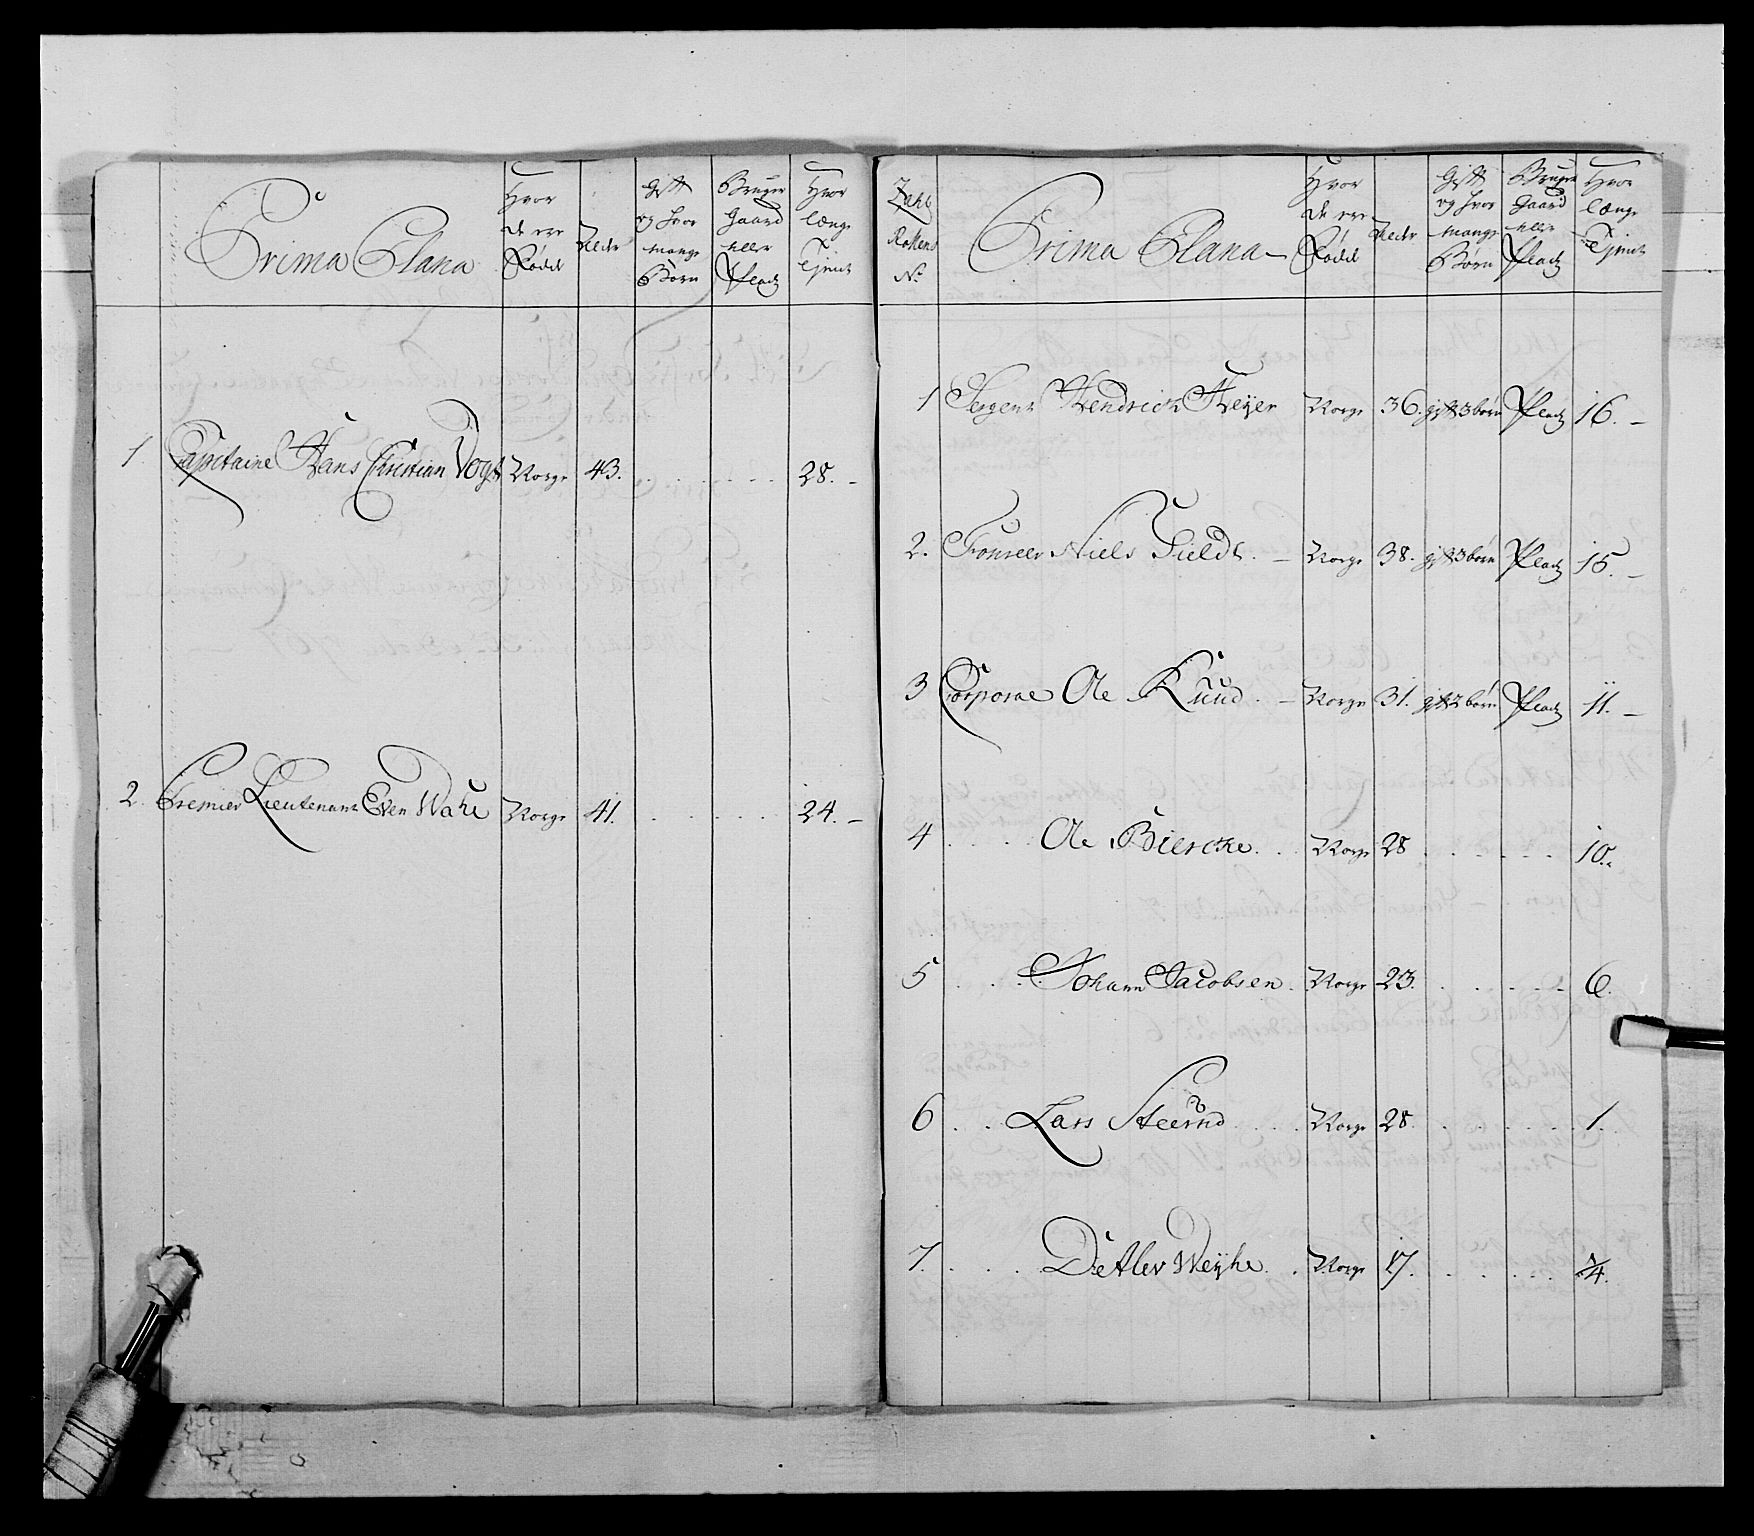 Prima Plana
Hvor de ere Födt
Alder
Gift og hvor mange Börn
Bruger Gaard eller Pladz
Hvor længe Tient
1. Capitaine Hans Christian Vogt Norge 43. 28. -
2. Premier Lieutenant Even Wahl Norge 41. 24. -
Rollens No.
Prima Plana
Hvor de ere Födt
Alder
Gift og hvor mange Börn
Bruger Gaard eller Pladz
Hvor længe Tient
1 Sergent Hendrich Heyer Norge 36. gift 3 börn Pladz 16. -
2. Foureer Niels Field. - Norge 38. gift 3 börn Pladz 15. -
3 Corporal Ole Kuud. - Norge 31. gift 2 börn Pladz 11. -
4 Ole Biercke. Norge 28 10.
5 Johann Jacobsen. Norge 23. 6.
6 Lars Norge 28. 1.
7. Detlev Weyhe. Norge 17. 3/4.